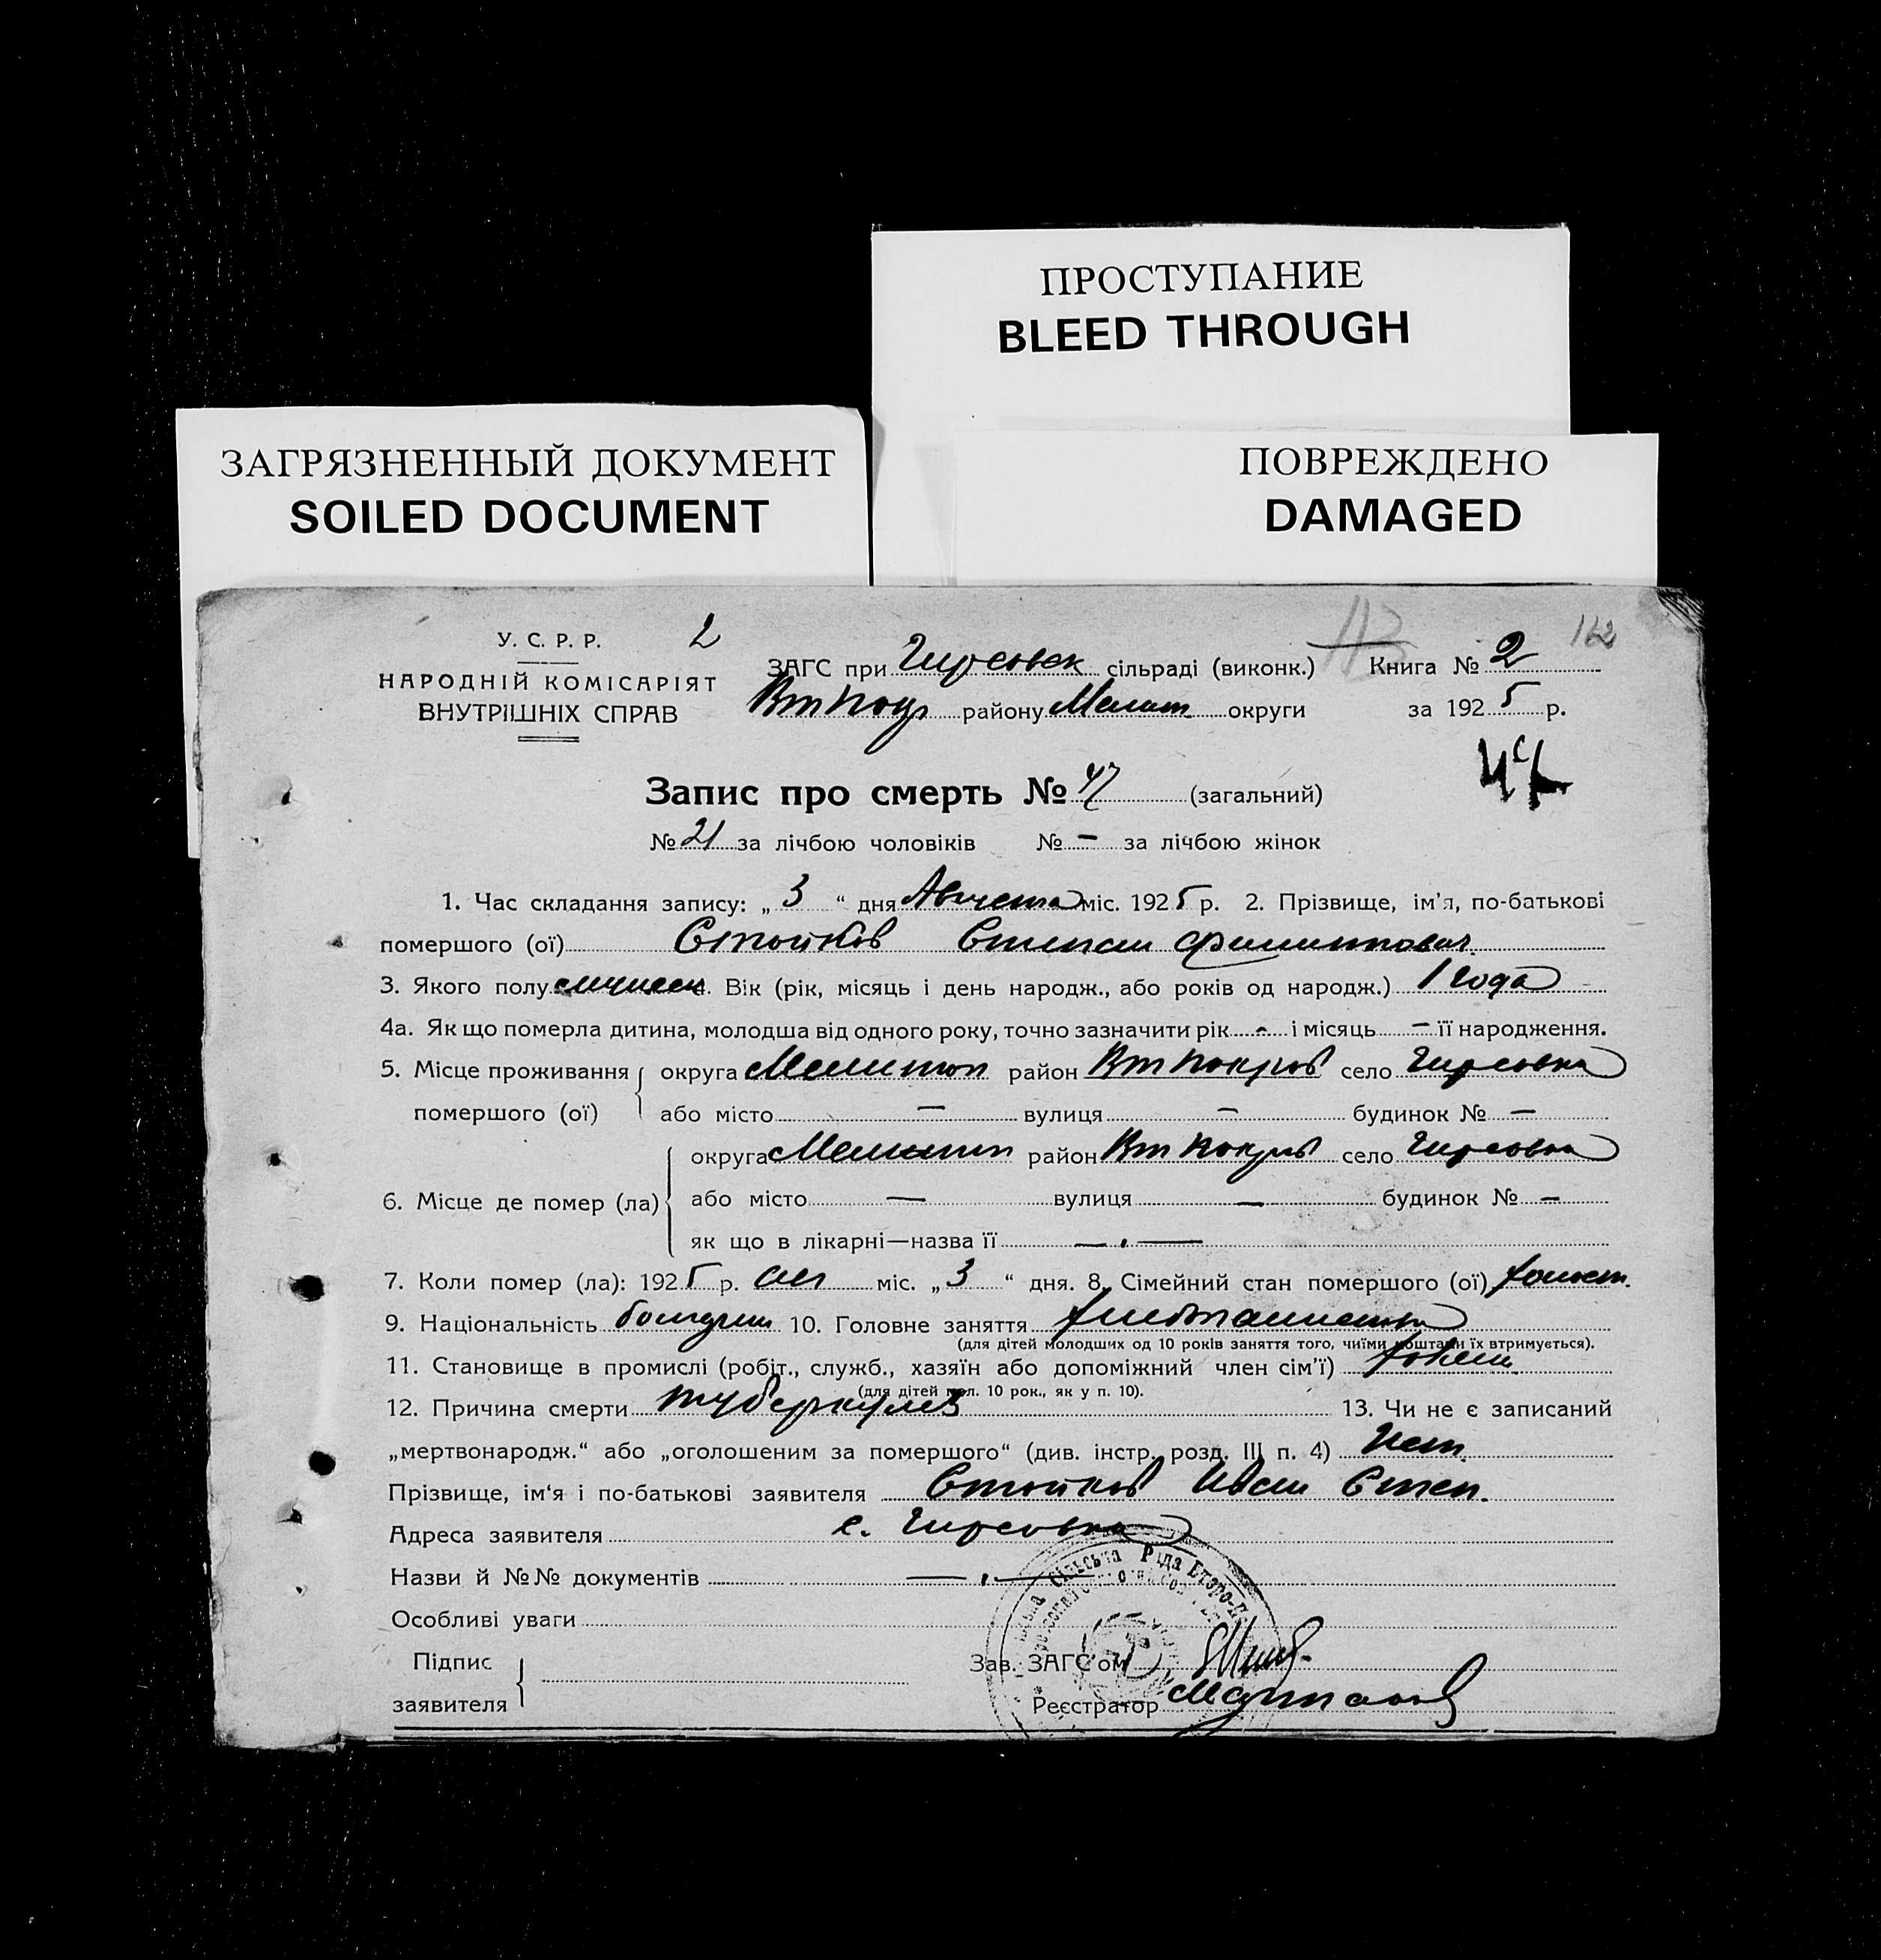 ПРОСТУПАНИЕ
BLEED THROUGH
ЗАГРЯЗНЕННЫЙ ДОКУМЕНТ
SOILED DOCUMENT
ПОВРЕЖДЕНО
DAMAGED
У. С. Р. Р. 2
НАРОДНІЙ КОМІСАРІЯТ
ВНУТРІШНІХ СПРАВ
113 112
ЗАГС при Гирсовск сільраді (виконк.) Книга № 2
Вт Покр району Мелит округи за 1925 р.
Запис про смерть № 47 (загальний)
№ 21 за лічбою чоловіків № — за лічбою жінок
1. Час складання запису: „ 3 “ дня Августа міс. 1925 р. 2. Прізвище, ім'я, по-батькові
помершого (ої) Стойков Степан Филиппович
3. Якого полу Вік (рік, місяць і день народж., або років од народж.) 1 года
4а. Як що померла дитина, молодша від одного року, точно зазначити рік - і місяць — її народження.
5. Місце проживання помершого (ої) округа Мелитоп район Вт Покров село Гирсовка
або місто — вулиця — будинок № —
6. Місце де помер (ла) округа Мелитоп район Вт Покров село Гирсовка
або місто — вулиця — будинок № —
як що в лікарні—назва її — . —
7. Коли помер (ла): 1925 р. міс. „ 3 “ дня. 8. Сімейний стан помершого (ої) холост.
9. Національність болгарин 10. Головне заняття хлебопашество
(для дітей молодших од 10 років заняття того, чиїми коштами їх втримується).
11. Становище в промислі (робіт., служб., хазяїн або допоміжний член сім'ї)
(для дітей мол. 10 рок., як у п. 10).
12. Причина смерти туберкулез 13. Чи не є записаний
„мертвонародж.“ або „оголошеним за помершого“ (див. інстр. розд. III п. 4) Нет
Прізвище, ім'я і по-батькові заявителя Стойков Иван Степ.
Адреса заявителя с. Гирсовка
Назви й №№ документів — . —
Особливі уваги
Підпис заявителя
Зав. ЗАГС'ом
Реєстратор